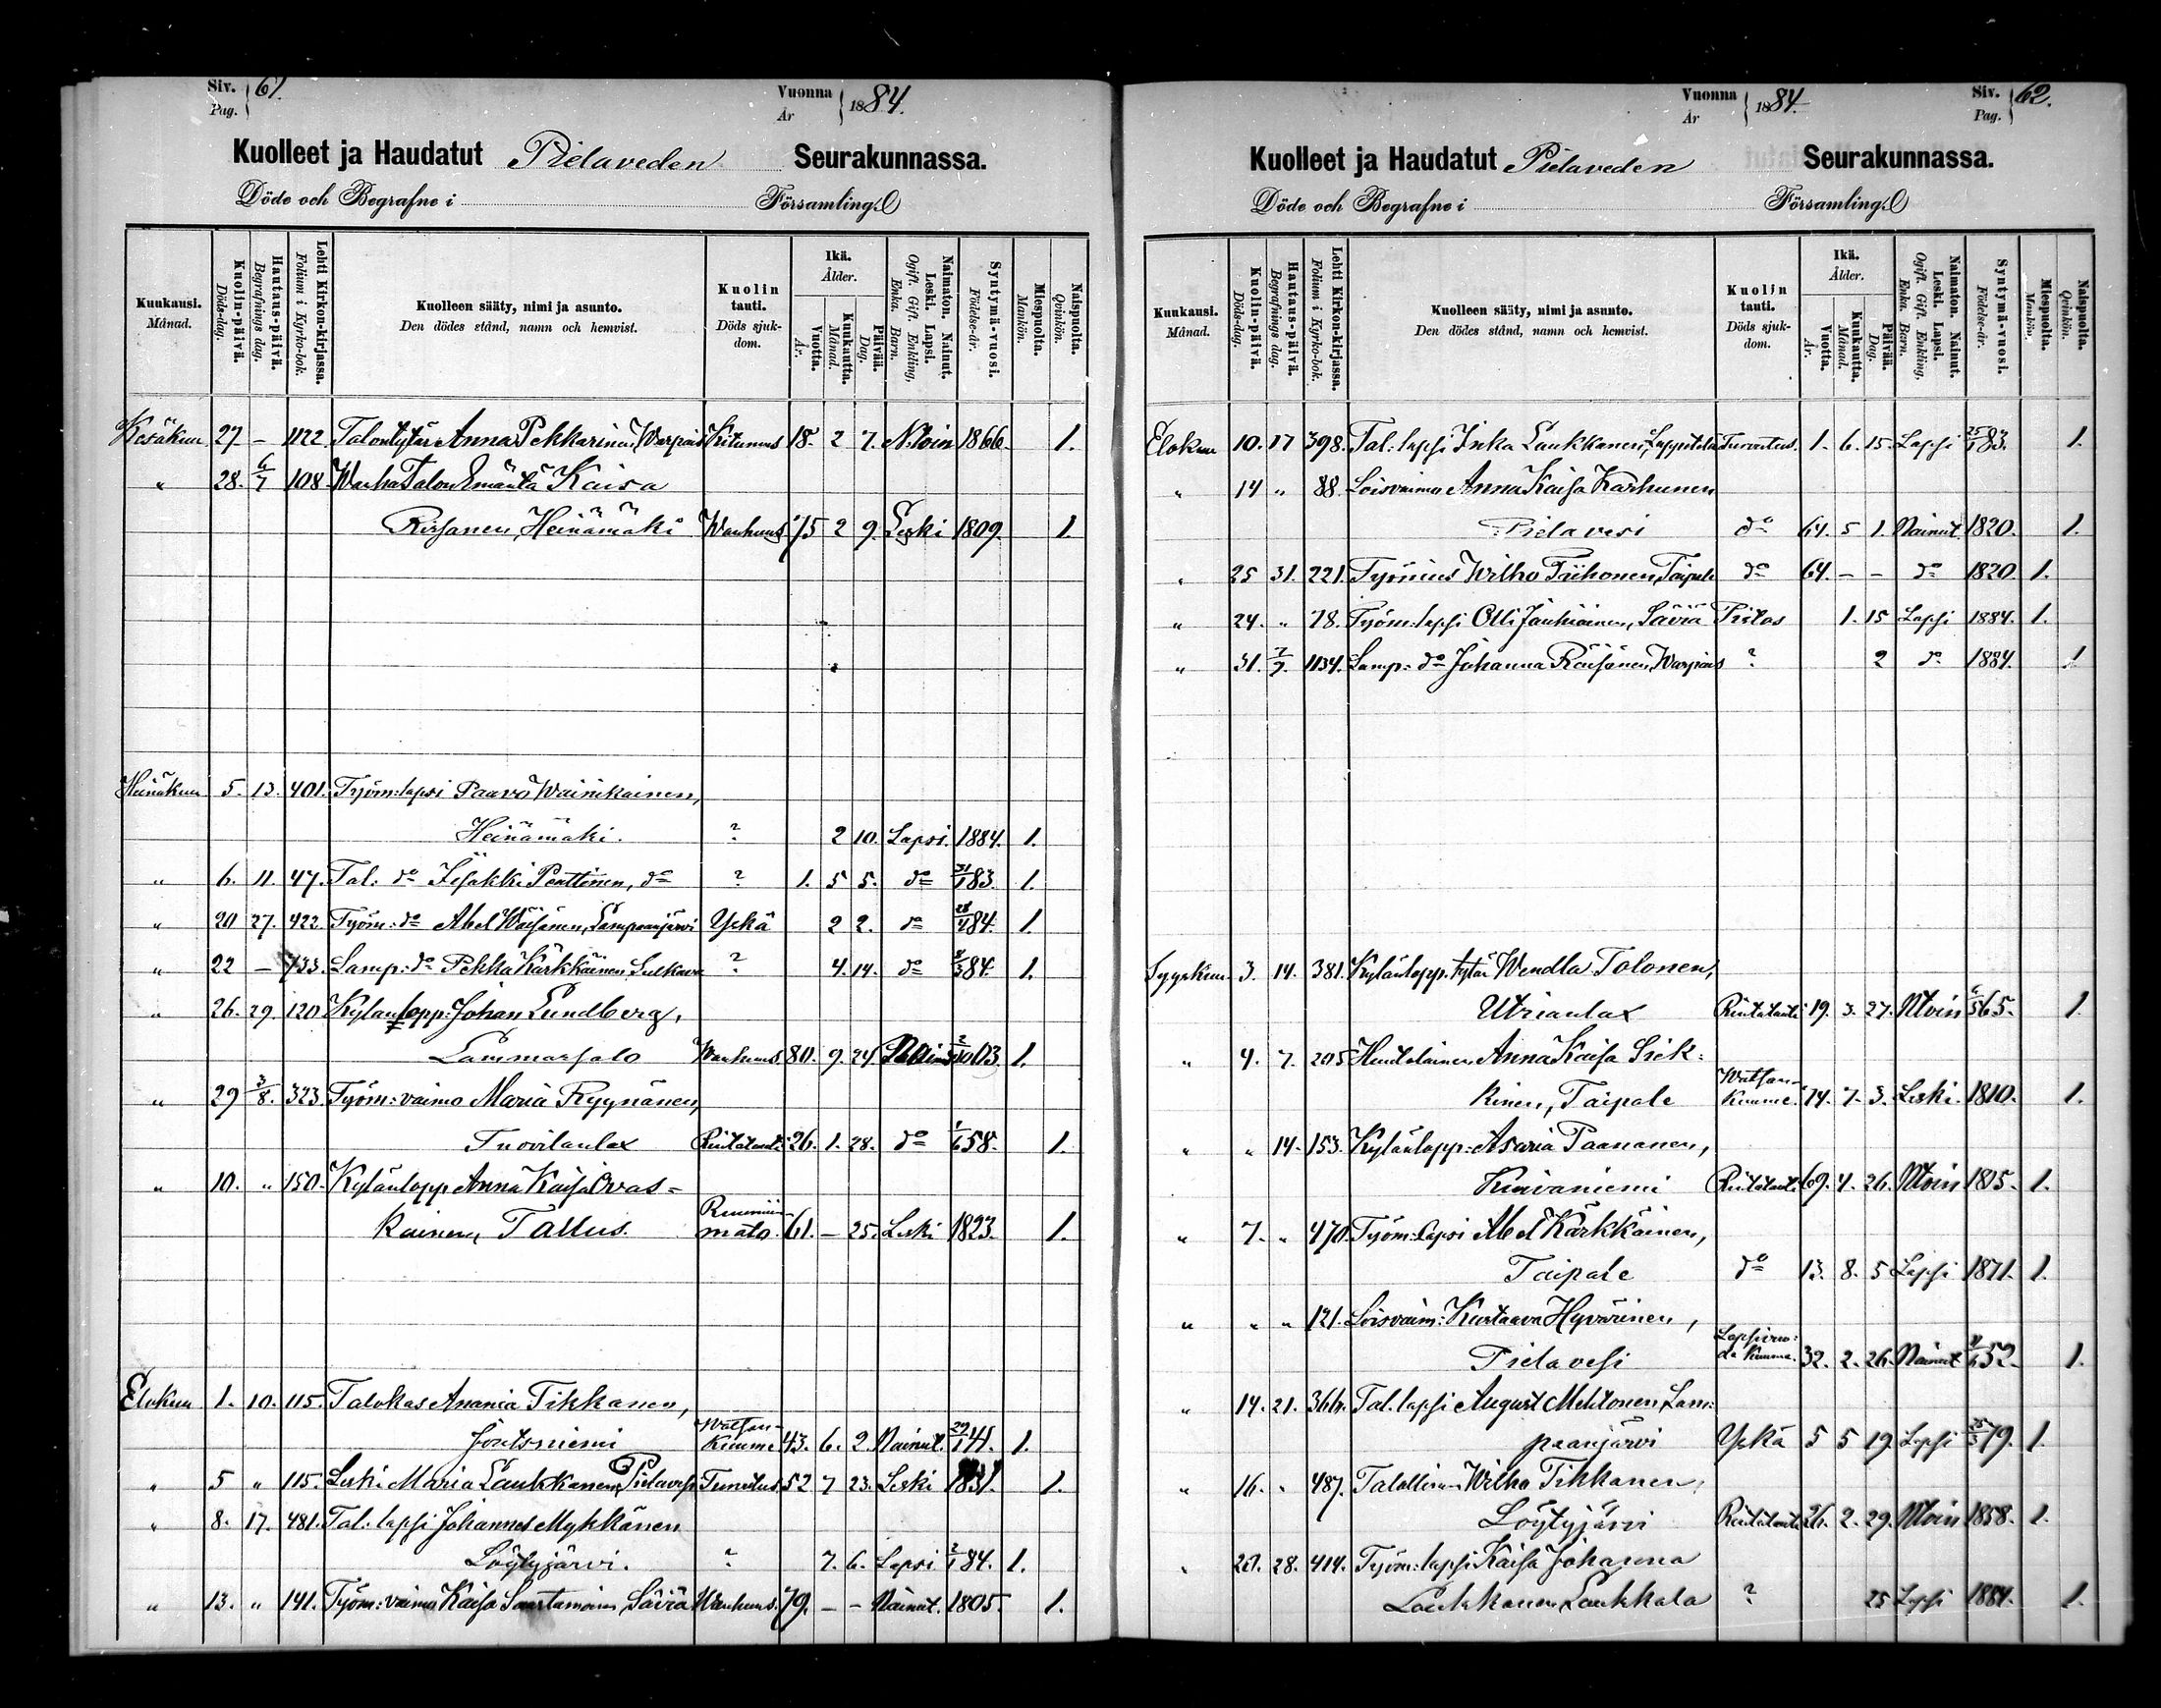 Siv. Pag. 61.
Vuonna År 1884.
Kuolleet ja Haudatut Pielaveden Seurakunnassa.
Döde och Begrafne i Församling.
Kuukausi. Månad.
Kuolin-päivä. Döds-dag.
Hautaus-päivä. Begrafnings dag.
Lehti Kirkon-kirjassa. Folium i Kyrko-bok.
Kuolleen sääty, nimi ja asunto. Den dödes stånd, namn och hemvist.
Kuolin tauti. Döds sjukdom.
Ikä. Ålder.
Vuotta. År.
Kuukautta. Månad.
Päivää. Dag.
Naimaton. Nainut. Leski. Lapsi. Ogift. Gift. Enkling, Enka. Barn.
Syntymä-vuosi. Födelse-år.
Miespuolta. Mankön.
Naispuolta. Qvinkön.
Kesäkuu 27 – 1122 Talontytär Anna Pekkarinen, Warpais Kitumus 18. 2 7. Ntoin 1866. 1.
" 28. 6/7 108 Wanha Talon Emäntä Kaisa
Rissanen, Heinämäki Wanhuus 75 2 9. Leski 1809. 1.
Heinäkuu 5. 13. 401. Työm: lapsi Paavo Wainikainen,
Heinämäki. ? 2 10. Lapsi. 1884. 1.
" 6. 11. 47. Tal: do Iisakki Penttinen, do ? 1. 5 5. do 31/1 83. 1.
" 20 27. 422. Työm: do Abel Wäisänen, Lampaanjärvi Yskä 2 2. do 28/4 84. 1.
" 22 – 733. Lamp: do Pekka Kärkkäinen Sulkava ? 4. 14. do 8/3 84. 1.
" 26. 29. 120. Kylänlopp: Johan Lundberg,
Lammassalo Wanhuus. 80. 9. 24. 03. 1.
" 29 3/8. 323. Työm: vaimo Maria Ryynänen,
Tuovilanlax Rintatauti 26. 1. 28. do 1/6 58. 1.
" 10. " 150. Kylänlopp. Anna Kaisa Ovas-
kainen, Tallus. mato. 61. – 25. Leski 1823. 1.
Elokuu 1. 10. 115. Talokas Anania Tikkanen,
Joutsniemi Watsan- kuume 43. 6. 2. Nainut. 29/1 41. 1.
" 5 " 115. Leski Maria Laukkanen, Pielavesi Turvotus. 52 7 23. Leski 1831. 1.
" 8. 17. 481. Tal: lapsi Johannes Mykkänen
Löytyjärvi. ? 7. 6. Lapsi 2/1 84. 1.
" 13. " 141. Työm: vaimo Kaisa Saastamoin, Säviä Wanhuus. 79. – – Nainut. 1805. 1.
Vuonna År 1884.
Siv. Pag. 62.
Kuolleet ja Haudatut Pielaveden Seurakunnassa.
Döde och Begrafne i Församling.
Kuukausi. Månad.
Kuolin-päivä. Döds-dag.
Hautaus-päivä. Begrafnings dag.
Lehti Kirkon-kirjassa. Folium i Kyrko-bok.
Kuolleen sääty, nimi ja asunto. Den dödes stånd, namn och hemvist.
Kuolin tauti. Döds sjukdom.
Ikä. Ålder.
Vuotta. År.
Kuukautta. Månad.
Päivää. Dag.
Naimaton. Nainut. Leski. Lapsi. Ogift. Gift. Enkling, Enka. Barn.
Syntymä-vuosi. Födelse-år.
Miespuolta. Mankön.
Naispuolta. Qvinkön.
Elokuu 10. 17 398. Tal: lapsi Inka Laukkanen, Turvotus. 1. 6. 15. Lapsi 25/1 83. 1.
" 14 " 88 Loisvaimo Anna Kaisa Karhunen
Pielavesi do 64. 5 1. Nainut 1820. 1.
" 25 31. 221. Työmies Wilho Tiihonen, Taipale do 64. – – do 1820. 1.
" 24. " 78. Työm: lapsi Olli Jauhiainen, Säviä Pistos 1. 15 Lapsi 1884. 1.
" 31. 7/9. 1134. Lamp: do Johanna Räisänen, Warpais ? 2 do 1884. 1
Syyskuu 3. 14. 381. Kylänlopp. tytär Wendla Tolonen,
Utrianlax Rintatauti 19. 3. 27. Ntoin 6/5 65. 1.
" 4. 7. 205 Huutolainen Anna Kaisa Siek:
kinen, Taipale Watsan- kuume. 74. 7. 3. Leski. 1810. 1.
" " 14. 153. Kylänlopp: Asaria Paananen,
Kuivaniemi Rintatauti 69. 4. 26. Ntoin 1815. 1.
" 7. " 470. Työm: lapsi Abel Kärkkäinen,
Taipale do 13. 8. 5 Lapsi 1871. 1.
" " " 121. Loisvaim: Kustaava Hyvärinen,
Pielavesi 32. 2. 26. Nainut 52. 1.
" 14. 21. 366. Tal. lapsi August Mehtonen, Lam:
paanjärvi Yskä 5 5 19. Lapsi 25/3 79. 1.
" 16. " 487. Talollinen Wilho Tikkanen,
Löytyjärvi Rintatauti 26. 2. 29. Ntoin 1858. 1.
" 20. 28. 414. Työm: lapsi Kaisa Johanna
Laukkanen, Laukkala ? 25 Lapsi 1884. 1.